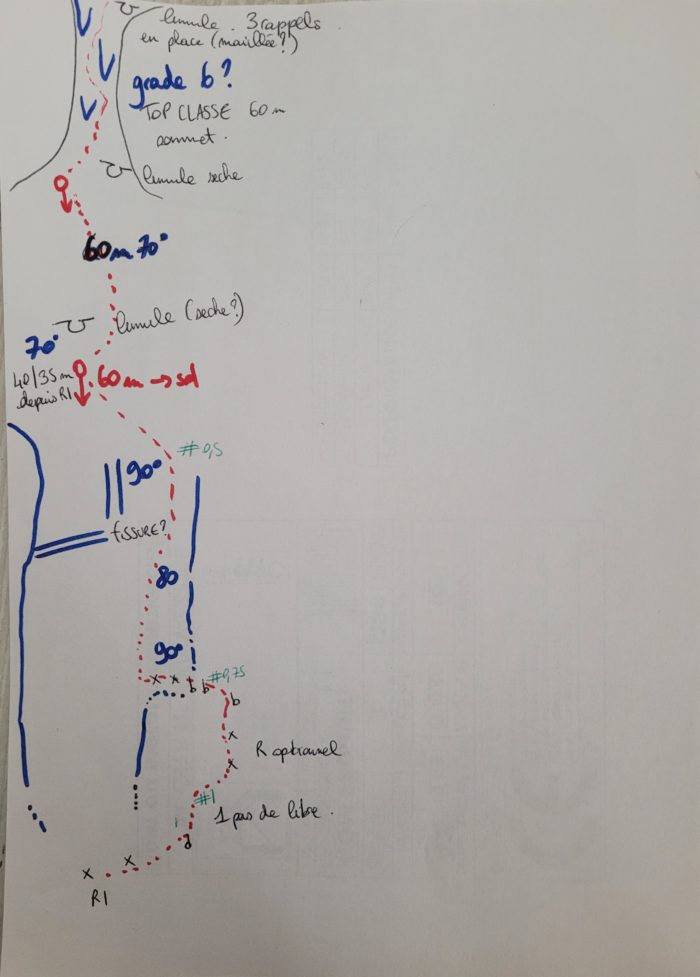 lunule . 3 rappels .
en place (maillée?)
grade 6?
TOP CLASSE 60 m
sommet .
lunule seche
60m 70°
lunule (seche?)
70°
40/35 m
depuis R1
60 m → sol
#0,5
90°
fissure?
80
90°
x x b b #0,75
b
x
R optionnel
x
#1
1 pas de libre .
x x
R1